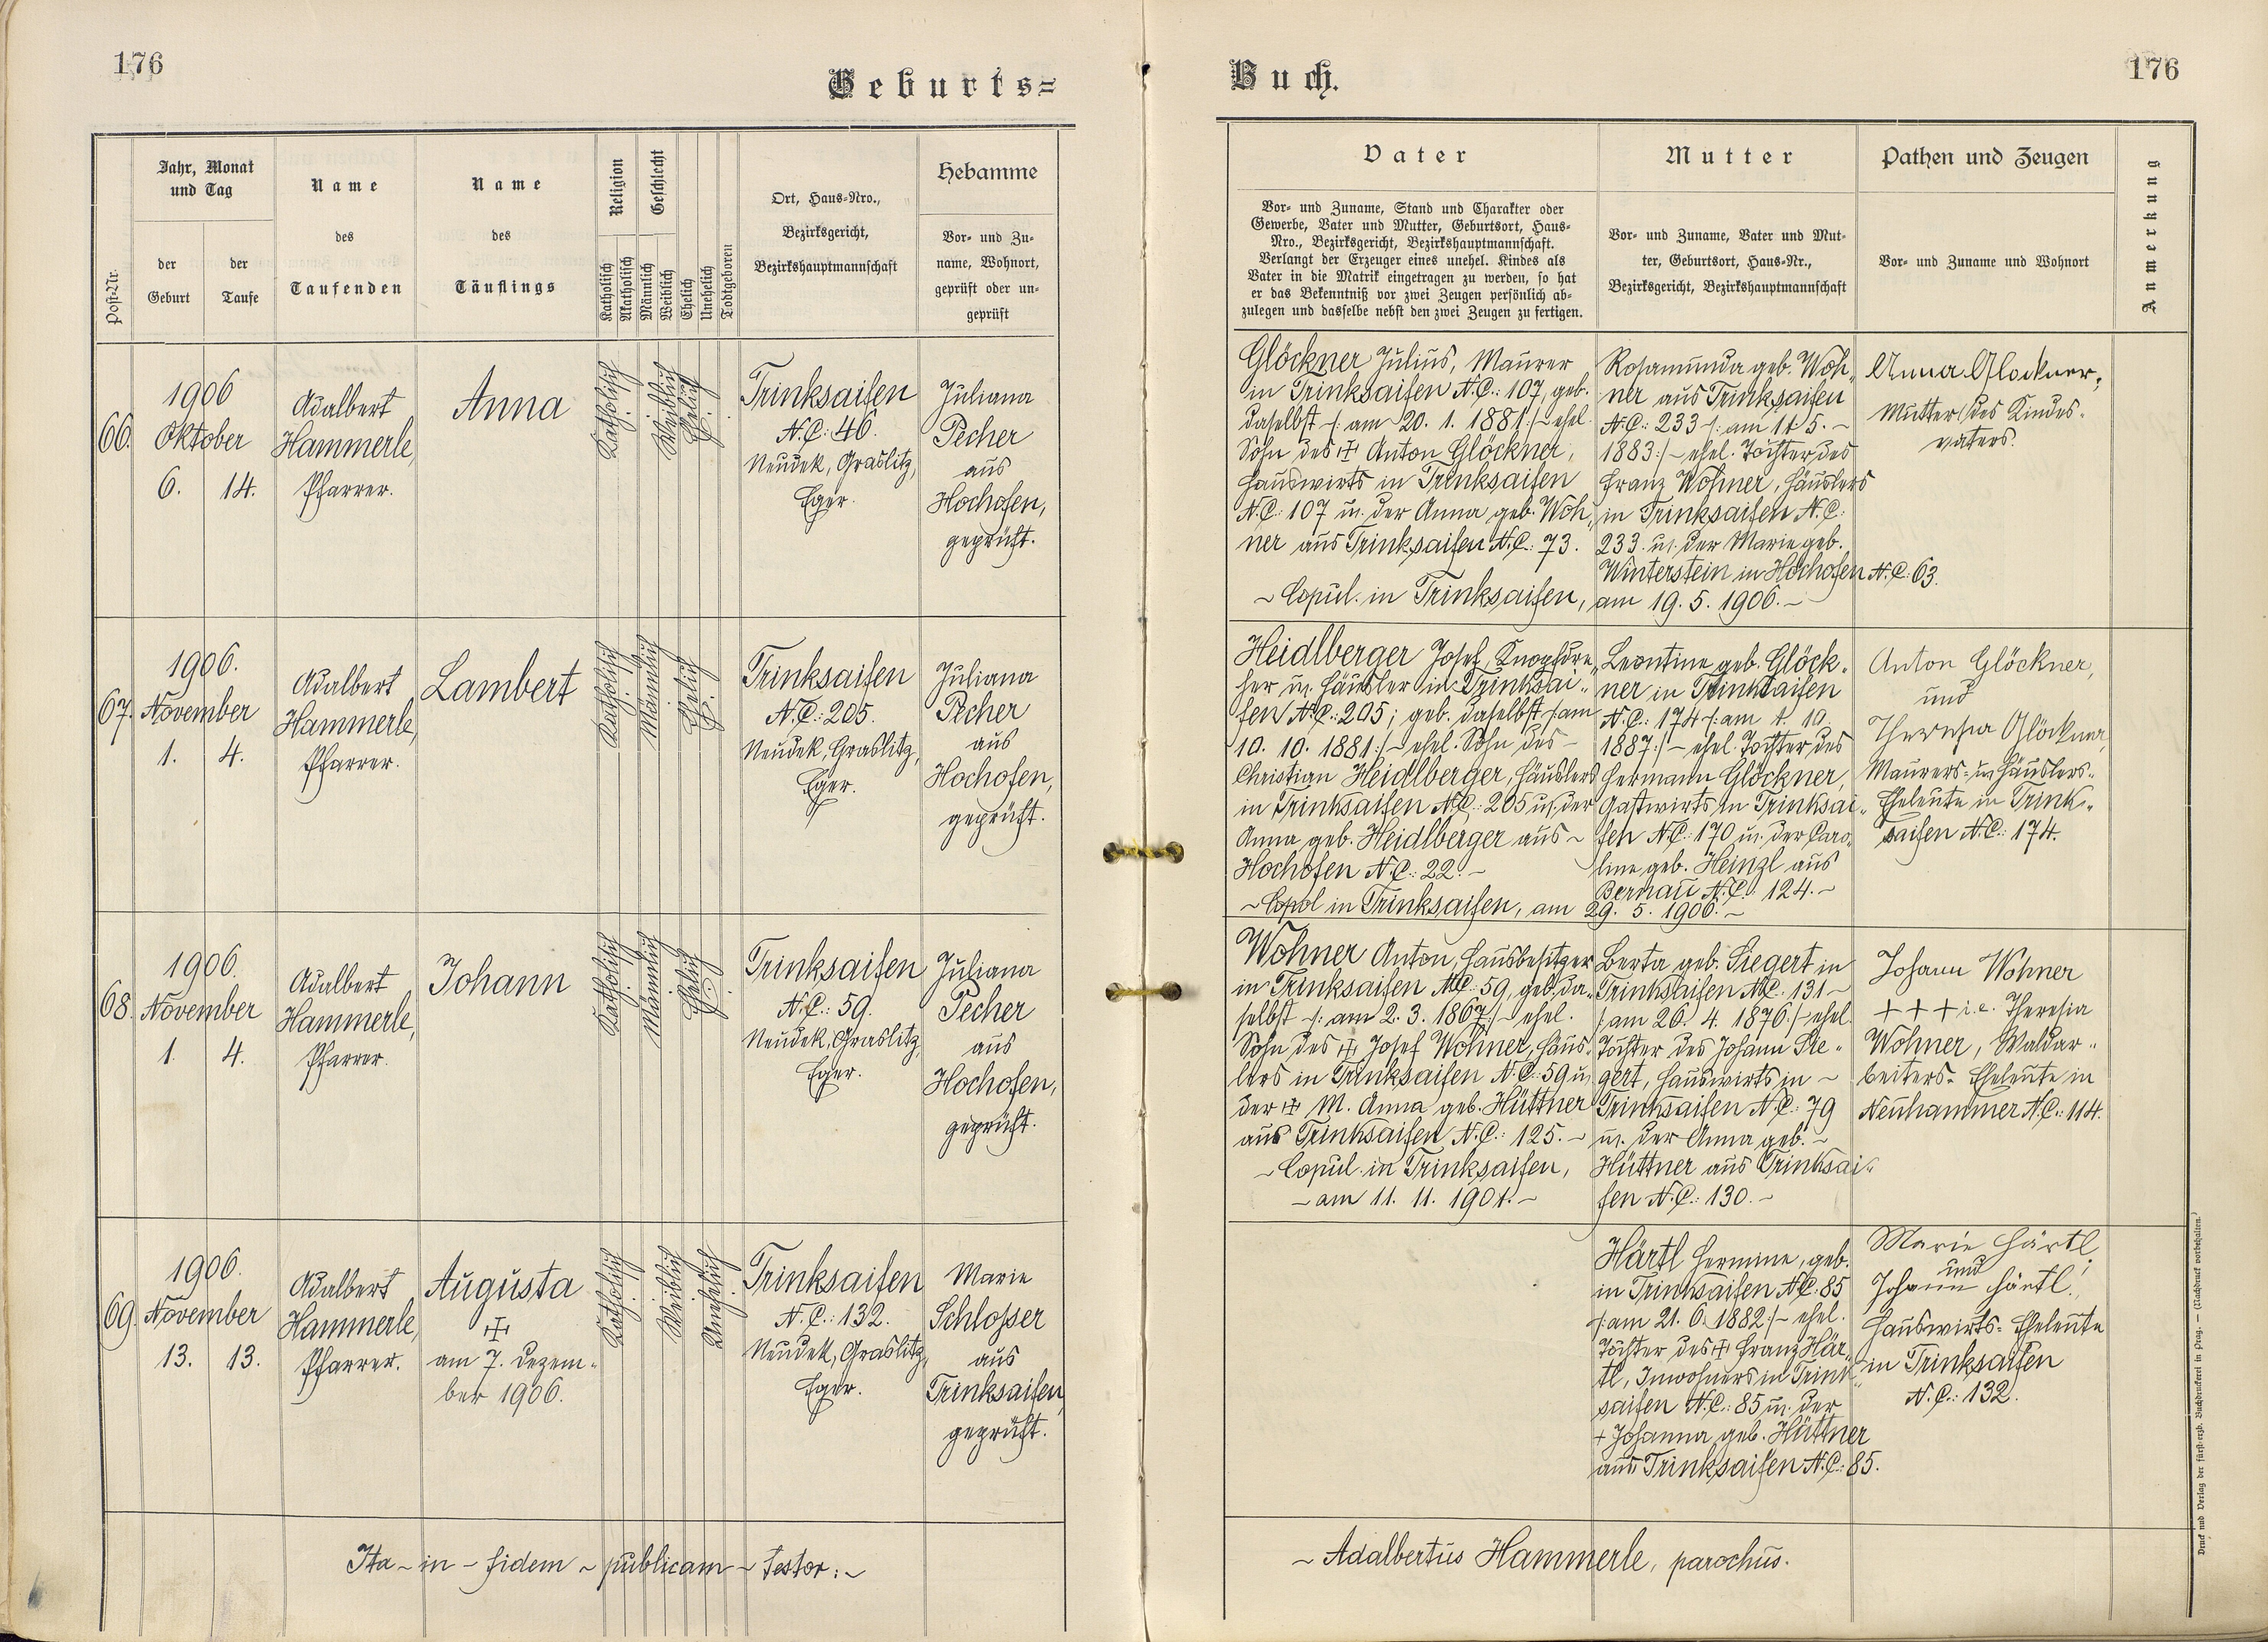 176
Geburts=
Buch.
176
Post-Nr.
Jahr, Monat
und Tag
der
Geburt
der
Taufe
Name
des
Taufenden
Name
des
Täuflings
Religion
Katholisch
Akatholisch
Geschlecht
Männlich
Weiblich
Ehelich
Unehelich
Todtgeboren
Ort, Haus-Nro.,
Bezirksgericht,
Bezirkshauptmannschaft
Hebamme
Vor- und Zu-
name, Wohnort,
geprüft oder un-
geprüft
Vater
Vor- und Zuname, Stand und Charakter oder
Gewerbe, Vater und Mutter, Geburtsort, Haus-
Nro., Bezirksgericht, Bezirkshauptmannschaft.
Verlangt der Erzeuger eines unehel. Kindes als
Vater in die Matrik eingetragen zu werden, so hat
er das Bekenntniß vor zwei Zeugen persönlich ab-
zulegen und dasselbe nebst den zwei Zeugen zu fertigen.
Mutter
Vor- und Zuname, Vater und Mut-
ter, Geburtsort, Haus-Nr.,
Bezirksgericht, Bezirkshauptmannschaft
Pathen und Zeugen
Vor- und Zuname und Wohnort
Anmerkung
66.
1906
Oktober
6. 14.
Adalbert
Hammerle,
Pfarrer.
Anna
Katholisch
Weiblich
Ehelich
Trinksaifen
N.C.: 46.
Neudek, Graslitz,
Eger.
Juliana
Pecher
aus
Hochofen,
geprüft.
Glöckner Julius, Maurer
in Trinksaifen N.C.: 107, geb.
daselbst /: am 20. 1. 1881 :/ ~ ehel.
Sohn des ✠ Anton Glöckner,
Hauswirts in Trinksaifen
N.C.: 107 u. der Anna geb. Woh„
ner aus Trinksaifen N.C.: 73.
~ Copul. in Trinksaifen, am 19. 5. 1906. ~
Rosamunda geb. Woh„
ner aus Trinksaifen
N.C.: 233 /: am 11 5. ~
1883 :/ ~ ehel. Tochter des
Franz Wohner, Häuslers
in Trinksaifen N.C.:
233. u. der Marie geb.
Winterstein in Hochofen N.C.: 63.
Anna Glöckner,
Mutter des Kindes-
vaters.
67.
1906.
November
1. 4.
Adalbert
Hammerle,
Pfarrer.
Lambert
Katholisch
Männlich
Ehelich
Trinksaifen
N.C.: 205.
Neudek, Graslitz,
Eger.
Juliana
Pecher
aus
Hochofen,
geprüft.
Heidlberger Josef, Knopfdre„
her u. Häusler in Trinksai„
fen N.C.: 205; geb. daselbst /: am
10. 10. 1881 :/ ~ ehel. Sohn des ~
Christian Heidlberger, Häuslers
in Trinksaifen N.C.: 205 u. der
Anna geb. Heidlberger aus ~
Hochofen N.C.: 22. ~
~ Copol in Trinksaifen, am 29. 5. 1906. ~
Leontine geb. Glöck„
ner in Trinksaifen
N.C.: 174 /: am 1. 10.
1887 :/ ~ ehel. Tochter des
Hermann Glöckner,
Gastwirts in Trinksai„
fen N.C.: 170 u. der Caro„
line geb. Heinzl aus
Bernau N.C.: 124. ~
Anton Glöckner,
und
Theresia Glöckner
Maurers- u. Häuslers-
Eheleute in Trink„
saifen N.C.: 174.
68.
1906.
November
1. 4.
Adalbert
Hammerle,
Pfarrer.
Johann
Katholisch
Männlich
Ehelich
Trinksaifen
N.C.: 59.
Neudek, Graslitz,
Eger.
Juliana
Pecher
aus
Hochofen,
geprüft.
Wohner Anton, Hausbesitzer
in Trinksaifen N.C.: 59, geb. da„
selbst /: am 2. 3. 1867 :/ ~ ehel.
Sohn des ✠ Josef Wohner, Häus„
lers in Trinksaifen N.C.: 59 u.
der ✠ M. Anna geb. Hüttner
aus Trinksaifen N.C.: 125. ~
~ Copul. in Trinksaifen,
~ am 11. 11. 1901. ~
Berta geb. Siegert in
Trinksaifen N.C.: 131 ~
/: am 26. 4. 1876 :/ ~ ehel.
Tochter des Johann Sie„
gert, Hauswirts in ~
Trinksaifen N.C.: 79
u. der Anna geb. ~
Hüttner aus Trinksai„
fen N.C.: 130. ~
Johann Wohner
+ + + i.e. Theresia
Wohner, Waldar„
beiters- Eheleute in
Neuhammer N.C.: 114.
69.
1906.
November
13. 13.
Adalbert
Hammerle,
Pfarrer.
Augusta
✠
am 7. Dezem„
ber 1906.
Katholisch
Weiblich
Unehelich
Trinksaifen
N.C.: 132.
Neudek, Graslitz,
Eger.
Marie
Schlosser
aus
Trinksaifen,
geprüft.
Härtl Hermine, geb.
in Trinksaifen N.C.: 85
/: am 21. 6. 1882 :/ ~ ehel.
Tochter des ✠ Franz Här„
tl, Inwohners in Trink„
saifen N.C.: 85 u. der
+ Johanna geb. Hüttner
aus Trinksaifen N.C.: 85.
Marie Härtl,
und
Johann Härtl.
Hauswirts- Eheleute
in Trinksaifen
N.C.: 132.
Ita ~ in ~ fidem ~ publicam ~ testor: ~
~ Adalbertus Hammerle, parochus.
Druck und Verlag der fürst-erzb. Buchdruckerei in Prag. — (Nachdruck vorbehalten.)